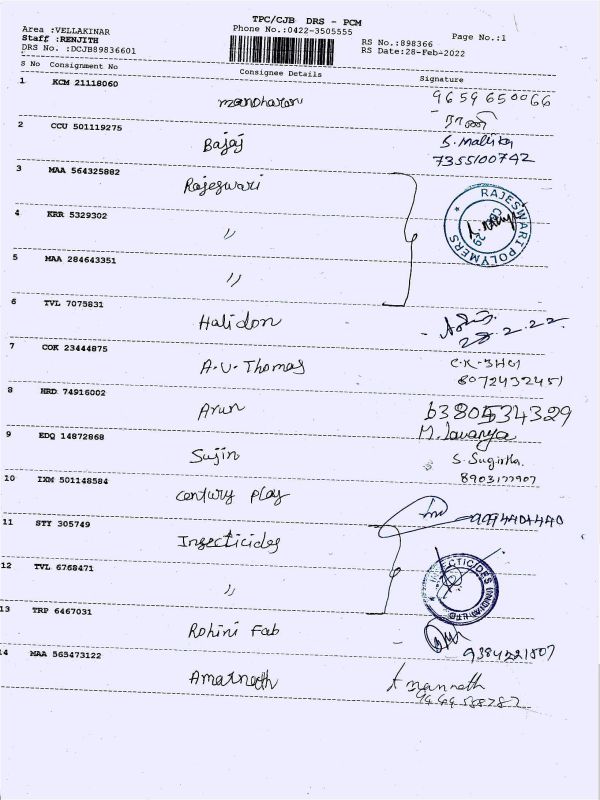 TPC/CJB DRS - PCM
Area :VELLAKINAR Phone No.:0422-3505555 Page No.:1
Staff :RENJITH RS No.:898366
DRS No. :DCJB89836601 RS Date:28-Feb-2022
S No Consignment No Consignee Details Signature
1 KCM 21118060
manoharan 9659650066
ராணி
2 CCU 501119275
Bajaj S. Mallika
7355100742
3 MAA 564325882
Rajeswari
RAJESWARI POLYMERS
4 KRR 5329302
〃
5 MAA 284643351
〃
6 TVL 7075831
Halidon 28.2.22
7 COK 23444875
A.V. Thomas
8072432451
8 HRD 74916002
Arun
M. Lavanya
9 EDQ 14872868
Sujin S. Sugirtha.
10 IXM 501148584
century play
9094401440
11 STY 305749
Insecticides
INSECTICIDES (INDIA) LTD
12 TVL 6768471
〃
13 TRP 6467031
Rohini Fab
9384221507
14 MAA 563473122
Amarnath